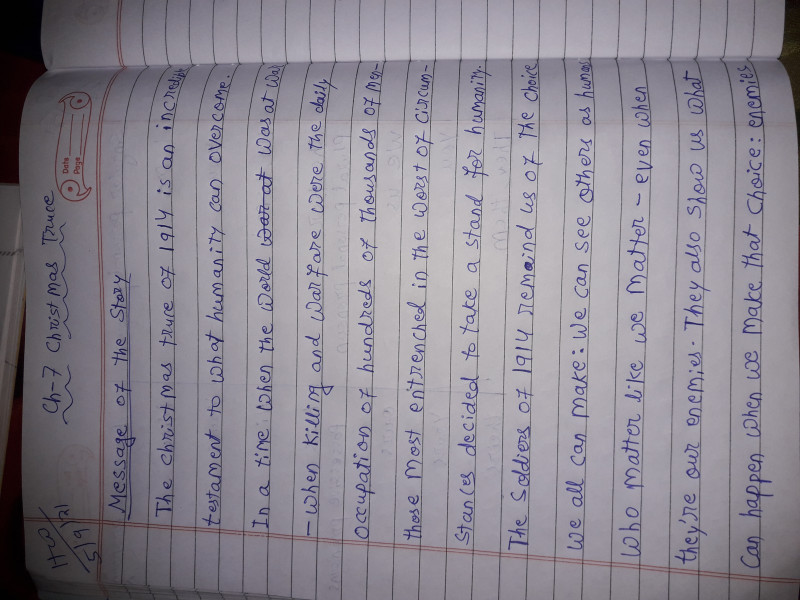 H.W
5/9/21
Ch-7 Christmas Truce
Date
Page
Message of the Story
The christmas truce of 1914 is an incredibl
testament to what humanity can overcome.
In a time when the world war at was at war
- when killing and warfare were the daily
occupation of hundreds of thousands of men-
those most entrenched in the worst of circum-
stances decided to take a stand for humanity.
The Soldiers of 1914 remaind us of the choice
we all can make: we can see others as humas
who matter like we matter - even when
they're our enemies. They also show us what
can happen when we make that choice: enemies